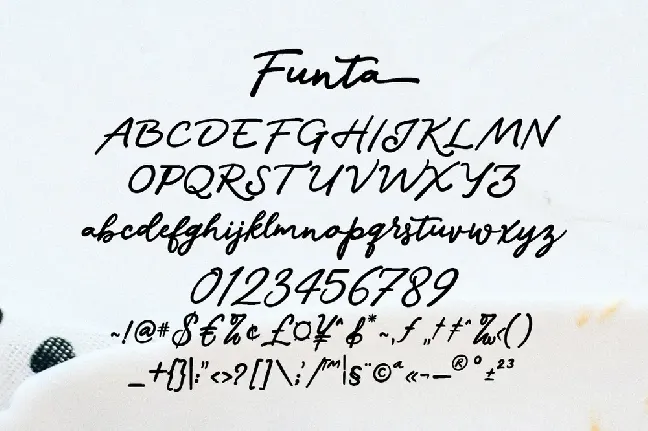 Funta
ABCDEFGHIJKLMN
OPQRSTUVWXYZ
abcdefghijklmnopqrstuvwxyz
0123456789
~!@#$€%¢£¤¥^&*~,ƒ„†‡ˆ‰‹()
_+{}|:"<>?[]\;'/™¦§¨©ª«¬—®°±²³